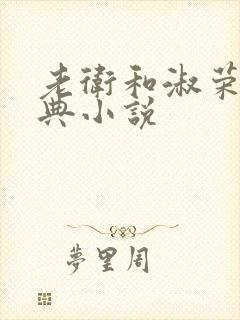 老衛和淑荣
典小説
夢里周